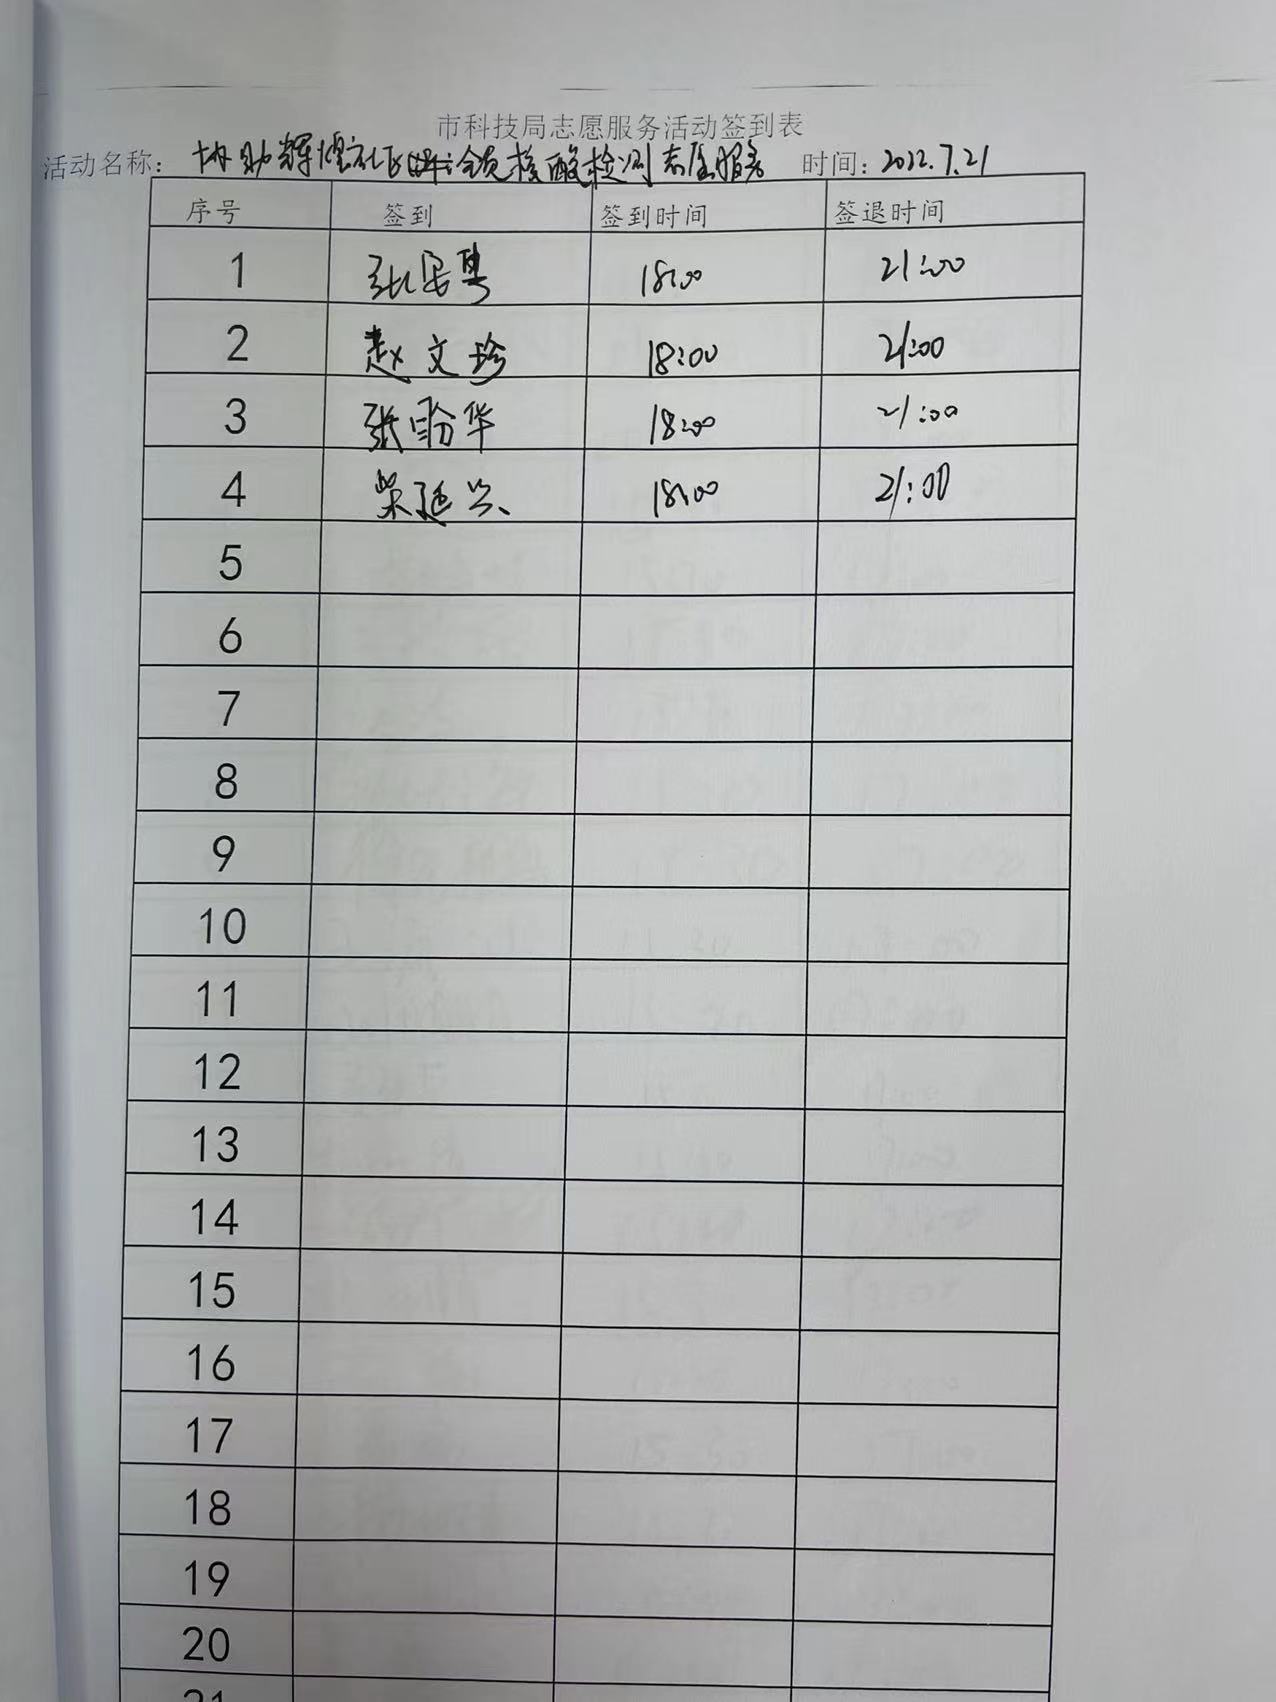 市科技局志愿服务活动签到表
活动名称： 协助辉煌社区全员核酸检测志愿服务 时间：2022.7.21
序号 签到 签到时间 签退时间
1 张 18:00 21:00
2 赵文珍 18:00 21:00
3 张盼华 18:00 21:00
4 柴延兴 18:00 21:00
5
6
7
8
9
10
11
12
13
14
15
16
17
18
19
20
21